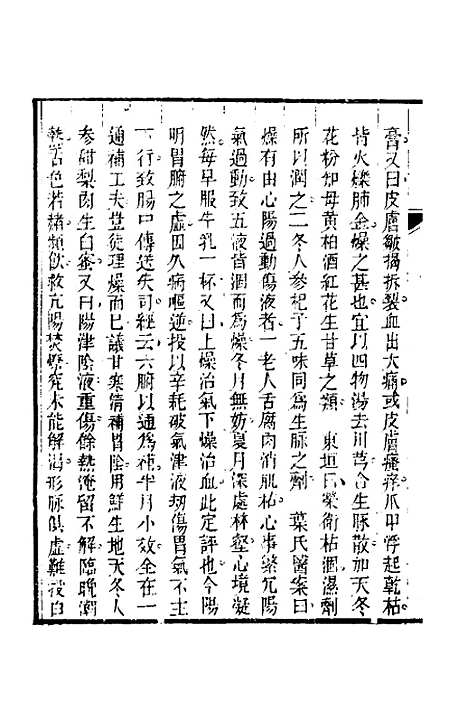 膏又曰皮膚皴揭拆裂血出大痛或皮膚瘙痒爪甲浮起乾枯
皆火爍肺金燥之甚也宜以四物湯去川芎合生脉散加天冬
花粉知母黄柏酒紅花生甘草之類　東垣曰榮衛枯涸濕劑
所以潤之二冬人參杞子五味同為生脉之劑　葉氏醫案曰
燥有由心陽過動傷液者一老人舌腐肉消肌枯心事縈冗陽
氣過動致五液皆涸而為燥冬月無妨夏月深處林壑心境凝
然每早服牛乳一杯又曰上燥治氣下燥治血此定評也今陽
明胃腑之虚因久病嘔逆投以辛耗破氣津液刼傷胃氣不主
下行致腸中傳送失司經云六腑以通為補半月小效全在一
通補工夫豈徒理燥而巳議甘寒清補胃陰用鮮生地天冬人
參甜梨肉生白蜜又曰陽津陰液重傷餘熱淹留不解臨晚潮
熱舌色若赭頻飲救亢陽焚燎究未能解渴形脉俱虚難投白